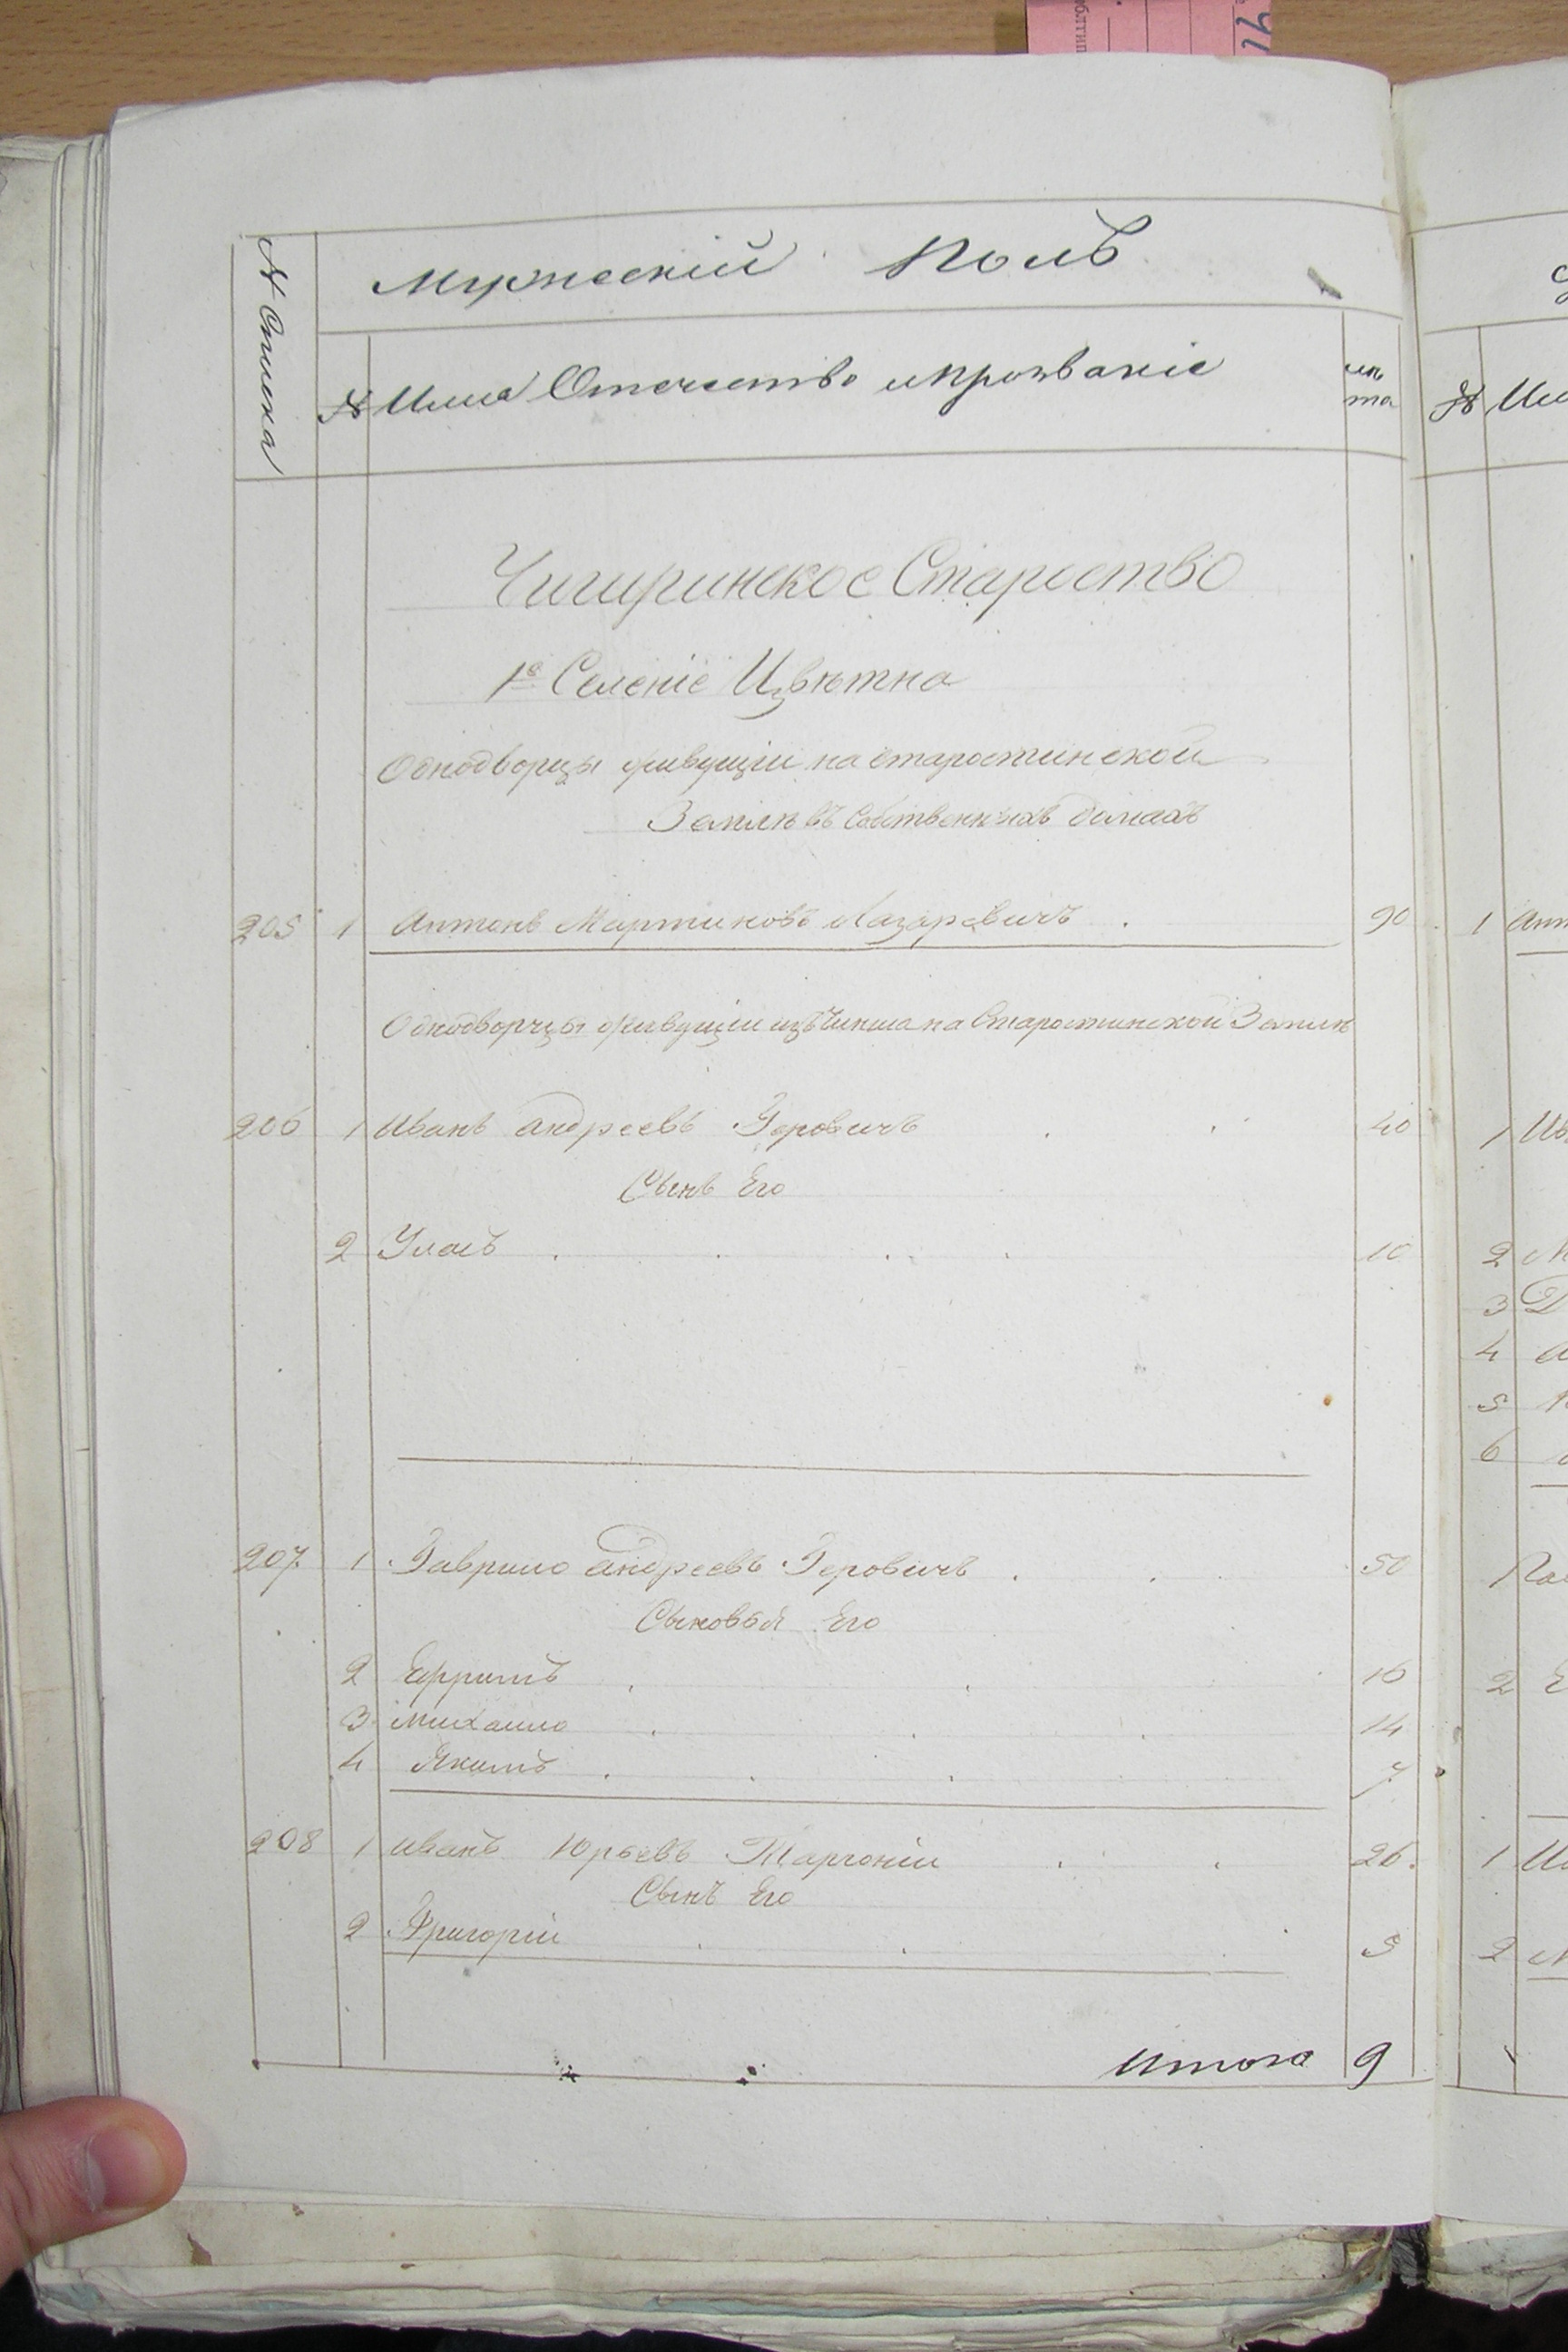 № Списка
Мужескій Полъ
№ Имя Отечество и прозваніе
лѣ
та
Чигиринское Староство
1е Селеніе Цвѣтна
Однодворцы живущіи на старостинской
Землѣ въ Собственныхъ домахъ
205 1 Антонъ Мартиновъ Лазаревичъ 90
Однодворцы живущіи изъ Чинша на Старостинской Землѣ
206 1 Иванъ Андреевъ Геровичъ 40
Сынъ Его
2 Уласъ 10
207 1 Гаврило Андреевъ Геровичъ 50
Сыновья Его
2 Ефримъ 16
3 Михаило 14
4 Якимъ 7
208 1 Иванъ Юрьевъ 26
Сынъ Его
2 Григорій 5
Итого 9
№
1
1
2
3
4
5
6
2
1
2